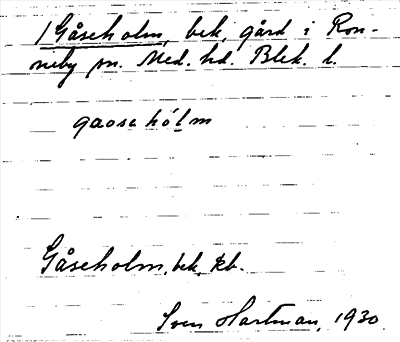 1 Gåseholm, bek. gård i Ron-
neby sn. Med. hd. Blek. l.
gaosa hólm
Gåseholm, bek. kb.
Sven Hartman, 1930